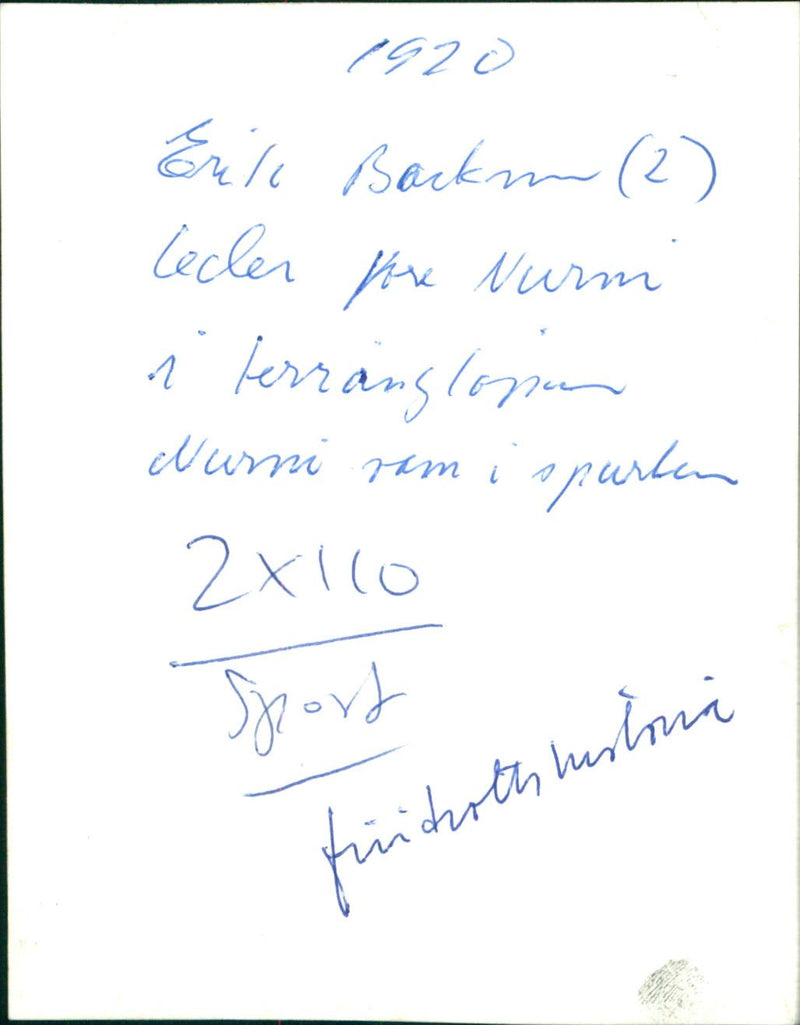 1920
Erik Backman (2)
leder före Nurmi
i terränglöpningen
Nurmi vann i spurten
2X110
Sport
friidrottshistoria